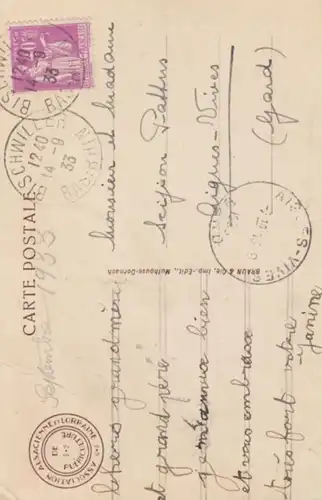 CARTE POSTALE
Monsieur et Madame
Scipion Pattus
Aigues-Vives
(Gard)
BISCHWILLER
12 40
14-9
33
BAS-RHIN
AIGUES-VIVES
GARD
BRAUN & Cie, Imp.-Edit., Mulhouse-Dornach
Septembre 1933
ASSOCIATION ALSACIENNE ET LORRAINE DE PUÉRICULTURE
Chers grand'mère
et grand père
bien
et vous embrasse
très fort votre
Yanine